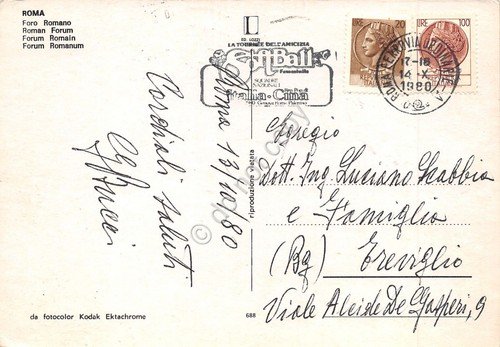 ROMA
Foro Romano
Roman Forum
Forum Romain
Forum Romanum
LIRE 20
LIRE 100
LA TOURNEE DELL'AMICIZIA
SQUADRE
NAZIONALI
Italia-Cina
ROMA FERROVIA
17-18
14-X
1980
Roma 13/10/80
Cordiali saluti
riproduzione vietata
Egregio
Dott. Ing. Luciano Scabbia
e Famiglia
(Bg) Treviglio
Viale Alcide De Gasperi, 9
da fotocolor Kodak Ektachrome
688